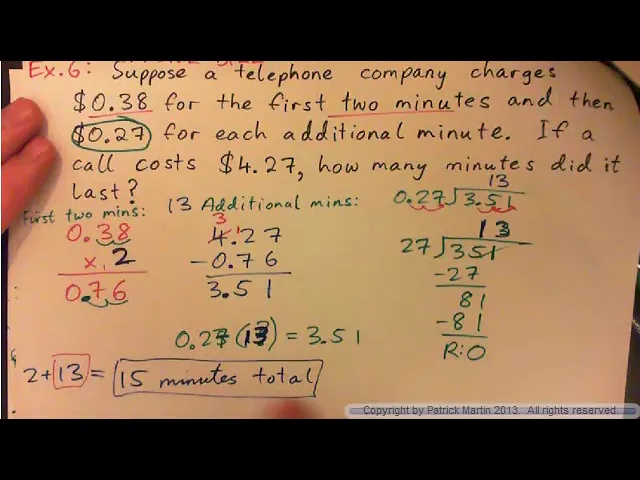 Ex.6: Suppose a telephone company charges
$0.38 for the first two minutes and then
$0.27 for each additional minute. If a
call costs $4.27, how many minutes did it
last?
First two mins:
0.38
x. 2
0.76
13 Additional mins:
3 1
4.27
-0.76
3.51
13
0.27 3.51
13
27 351
-27
81
-81
R:0
0.27 (13) = 3.51
2+13 = 15 minutes total
Copyright by Patrick Martin 2013. All rights reserved.